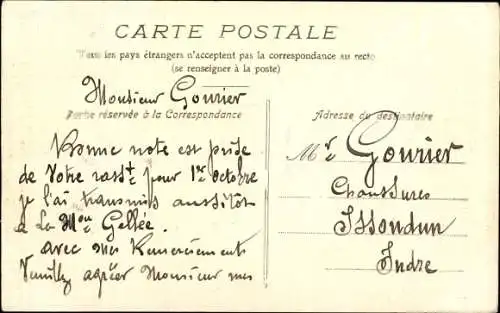 CARTE POSTALE
Tous les pays étrangers n'acceptent pas la correspondance au recto
(se renseigner à la poste)
Monsieur Gourier
Partie réservée à la Correspondance
Adresse du destinataire
Bonne note est prise
de Votre pour 1er Octobre
je l'ai transmis aussitôt
a La Mon Gellée.
avec mes Remerciements
Veuillez agréer Monsieur mes
Mr Gourier
Chaussures
Issoudun
Indre